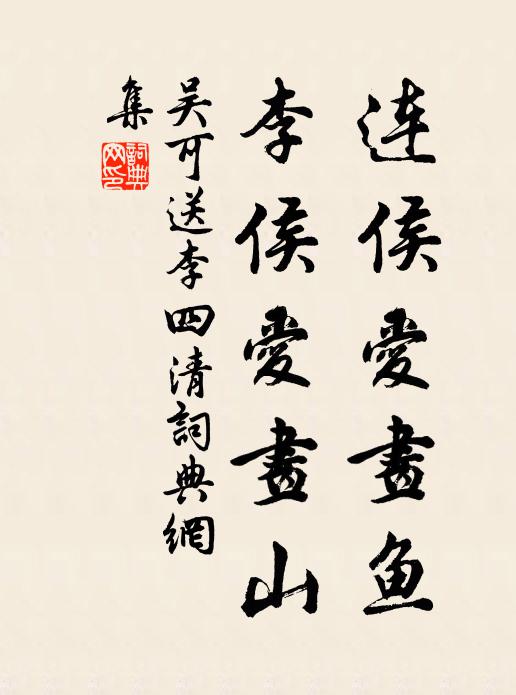 连侯愛畫鱼
李侯愛畫山
吴可送李四清詞典網
集
詞典網印